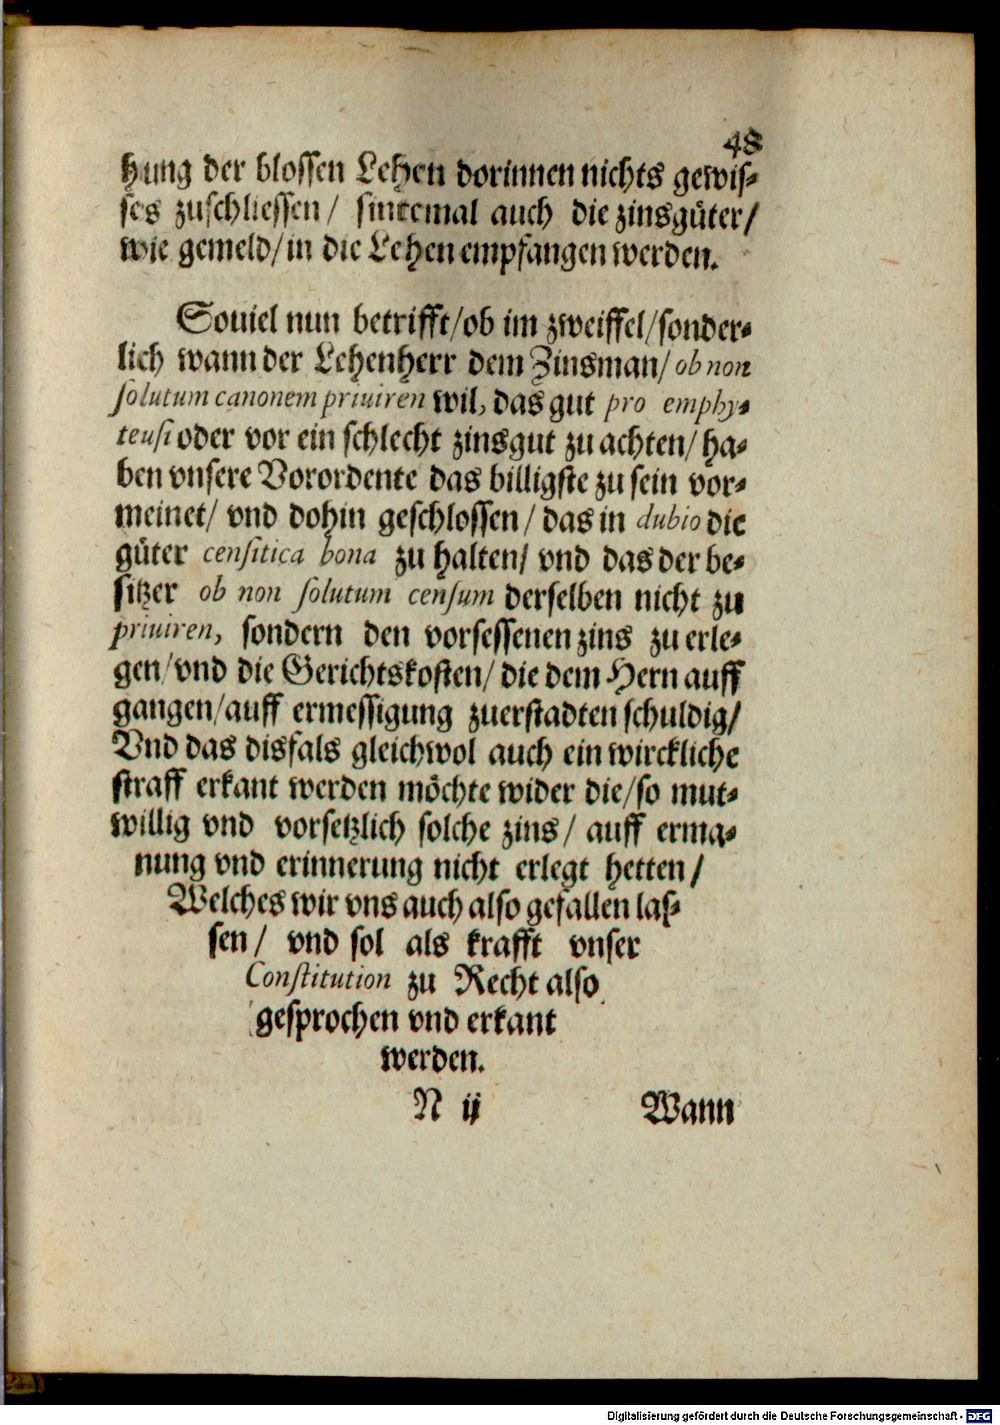 48
hung der blossen Lehen dorinnen nichts gewis-
ses zuschliessen / sintemal auch die zinsgüter /
wie gemeld / in die Lehen empfangen werden.
Souiel nun betrifft / ob im zweiffel / sonder-
lich wann der Lehenherr dem Zinsman / ob non
solutum canonem priuiren wil, das gut pro emphy-
teusi oder vor ein schlecht zinsgut zu achten / ha-
ben vnsere Verordente das billigste zu sein vor-
meinet / vnd dohin geschlossen / das in dubio die
güter censitica bona zu halten / vnd das der be-
sitzer ob non solutum censum derselben nicht zu
priuiren, sondern den vorsessenen zins zu erle-
gen / vnd die Gerichtskosten / die dem Hern auff
gangen / auff ermessigung zuerstadten schuldig /
Vnd das disfals gleichwol auch ein wirckliche
straff erkant werden möchte wider die / so mut-
willig vnd vorsetzlich solche zins / auff erma-
nung vnd erinnerung nicht erlegt hetten /
Welches wir vns auch also gefallen las-
sen / vnd sol als krafft vnser
Constitution zu Recht also
gesprochen vnd erkant
werden.
N ij Wann
Digitalisierung gefördert durch die Deutsche Forschungsgemeinschaft - DFG